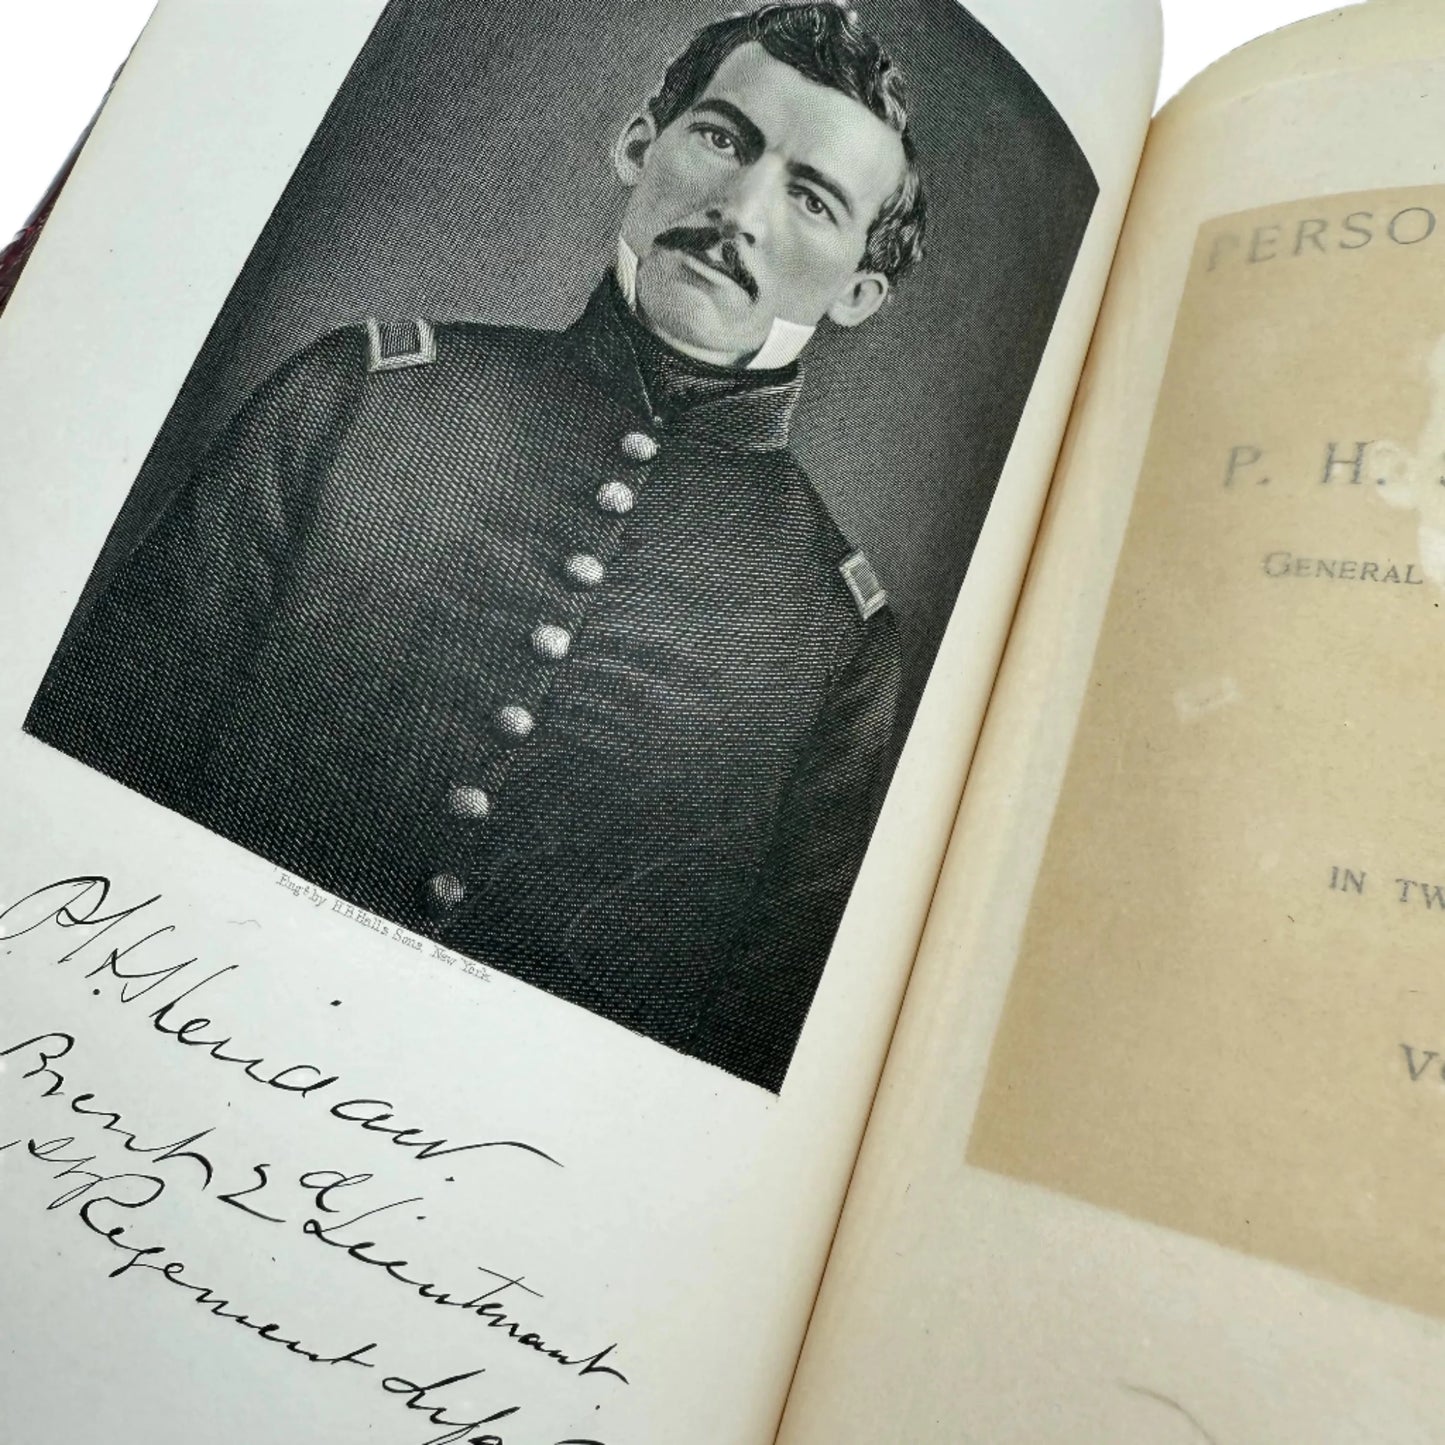 Engd. by H.B. Halls Sons, New York.
P. H. Sheridan.
Brevt 2d Lieutenant
1st Regiment Infa
PERSO
P. H. S
GENERAL
IN TW
Vo